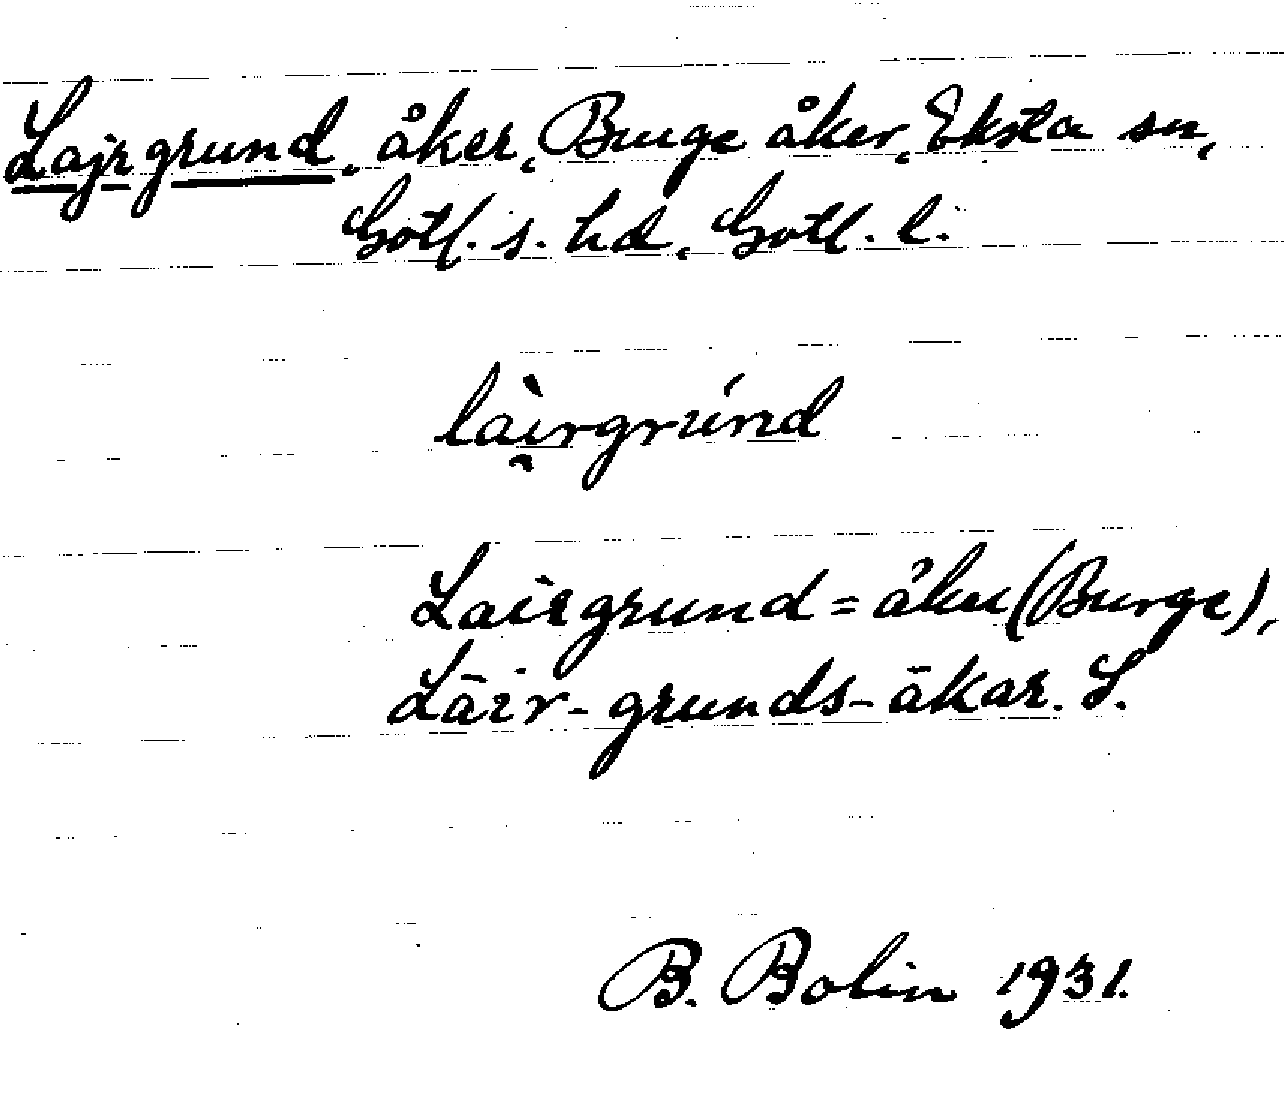 Lajrgrund, åker, Burge åker, Eksta sn,
Gotl. s. hd, Gotl. l.
lài̯rgrúnd
Lairgrund = åker (Burge),
Lāir-grunds-ākar. L.
B. Bolin 1931.